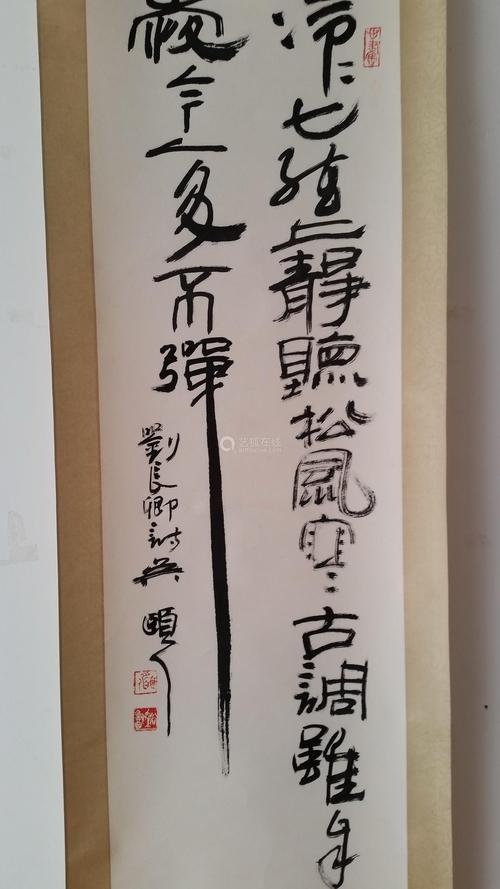 泠〻七絃上靜聽松風寒古調雖自
愛今人多不彈
劉長卿詩吳頤人
艺狐在线